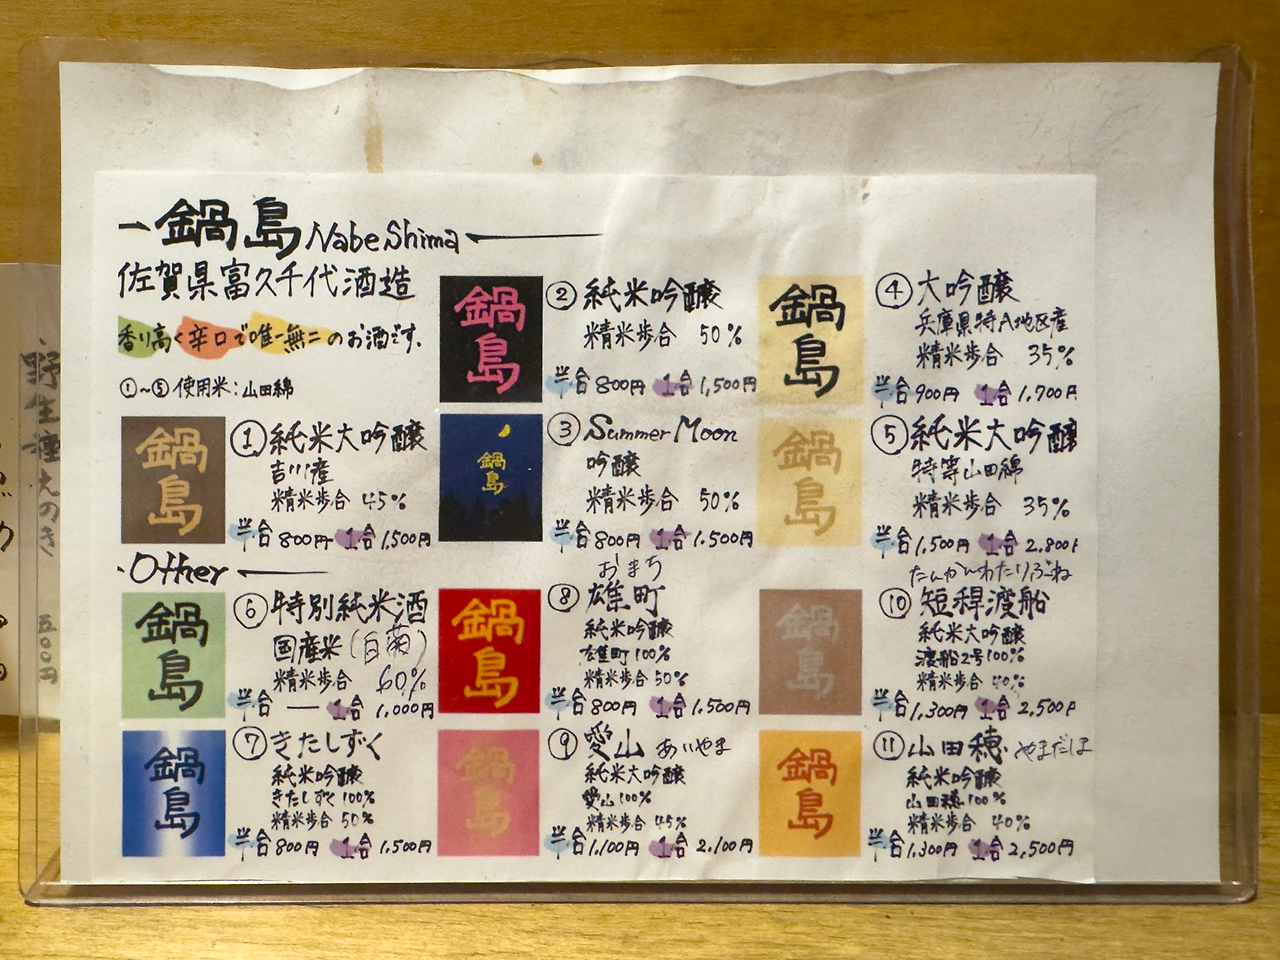 鍋島 Nabe Shima
佐賀県富久千代酒造
香り高く辛口で唯一無二のお酒です。
①~⑤使用米:山田綿
鍋島
①純米大吟醸
吉川産
精米歩合 45%
半合800円 1合1,500円
鍋島
②純米吟醸
精米歩合 50%
半合800円 1合1,500円
鍋島
③Summer Moon
吟醸
精米歩合 50%
半合800円 1合1,500円
鍋島
④大吟醸
兵庫県特A地区産
精米歩合 35%
半合900円 1合1,700円
鍋島
⑤純米大吟醸
特等山田綿
精米歩合 35%
半合1,500円 1合2,800円
・Other
鍋島
⑥特別純米酒
国産米(白菊)
精米歩合 60%
半合 ー 1合1,000円
鍋島
⑦きたしずく
純米吟醸
きたしずく100%
精米歩合 50%
半合800円 1合1,500円
鍋島
おまち
⑧雄町
純米吟醸
雄町100%
精米歩合50%
半合800円 1合1,500円
鍋島
⑨愛山 あいやま
純米大吟醸
愛山100%
精米歩合 45%
半合1,100円 1合2,100円
鍋島
たんかんわたりぶね
⑩短稈渡船
純米大吟醸
渡船2号100%
精米歩合 40%
半合1,300円 1合2,500円
鍋島
⑪山田穂 やまだほ
純米吟醸
山田穂100%
精米歩合 40%
半合1,300円 1合2,500円
五〇〇円